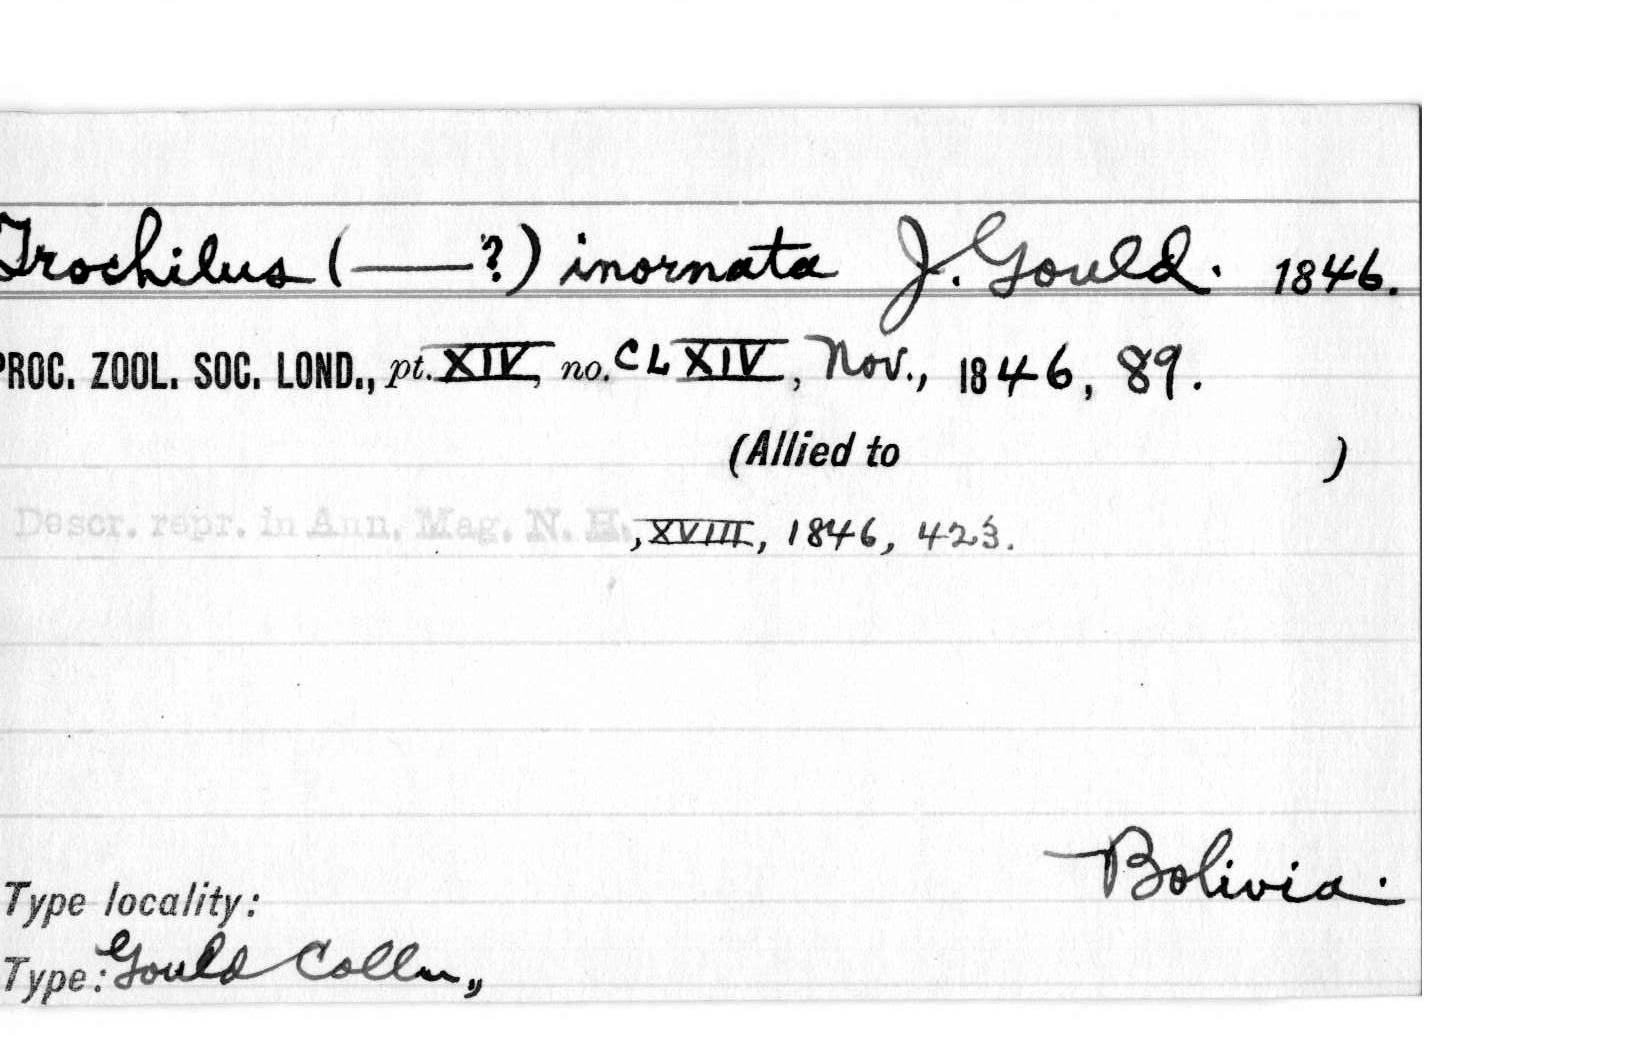 Trochilus (——?) inornata J. Gould. 1846.
PROC. ZOOL. SOC. LOND., pt. XIV, no. CLXIV, Nov., 1846, 89.
(Allied to )
Descr. repr. in Ann. Mag. N. H., XVIII, 1846, 423.
Bolivia.
Type locality:
Type: Gould Colln,,